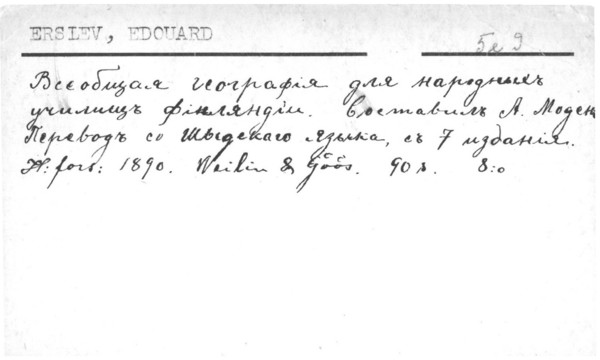 ERSLEV, EDOUARD
5e9
Всеобщая географія для народныхъ
училищъ Финляндіи. Составилъ А. Моден
Переводъ со Шведскаго языка, съ 7 изданія.
H:fors: 1890. Weilin & Göös. 90 s. 8:o